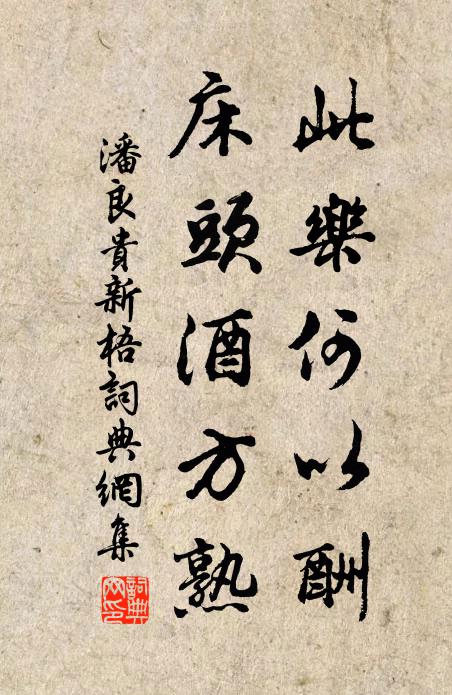 此樂何以酬
床頭酒方熟
潘良貴新梧詞典網集
詞典網印